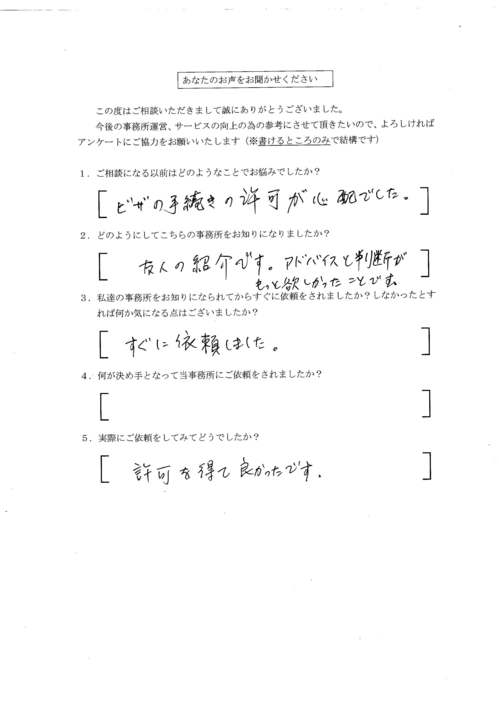 あなたのお声をお聞かせください
この度はご相談いただきまして誠にありがとうございました。
今後の事務所運営、サービスの向上の為の参考にさせて頂きたいので、よろしければ
アンケートにご協力をお願いいたします（※書けるところのみで結構です）
１．ご相談になる以前はどのようなことでお悩みでしたか？
ビザの手続きの許可が心配でした。
２．どのようにしてこちらの事務所をお知りになりましたか？
友人の紹介です。アドバイスと判断が
もっと欲しかったことです。
３．私達の事務所をお知りになられてからすぐに依頼をされましたか？しなかったとす
れば何か気になる点はございましたか？
すぐに依頼しました。
４．何が決め手となって当事務所にご依頼をされましたか？
５．実際にご依頼をしてみてどうでしたか？
許可を得て良かったです.